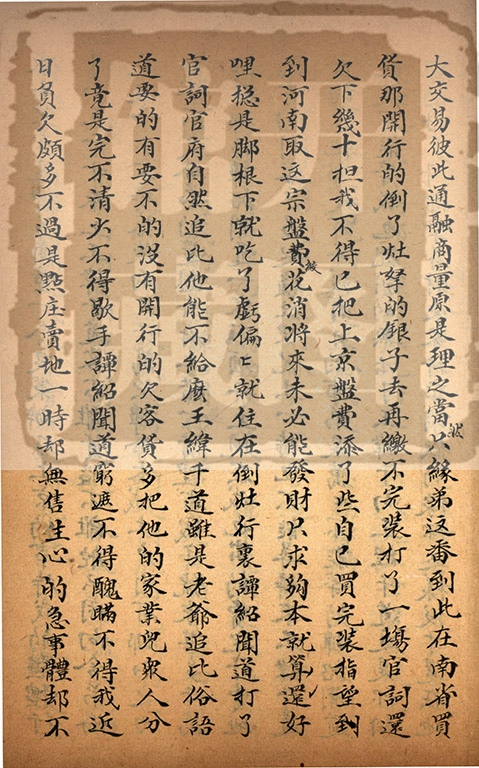 大交易彼此通融商量原是理之當然只緣弟这番到此在南省買
货那開行的倒了灶拏的銀子去再繳不完装打了一塲官詞還
欠下幾十担我不得已把上京盤費添了些自己買完装指望到
到河南取这宗盤費花消將來未必能發財只求夠本就算還好
哩捴是脚根下就吃了虧偏偏就住在倒灶行裏譚紹聞道打了
官詞官府自然追比他能不給庅王緯千道雖是老爺追比俗語
道要的有要不的没有開行的欠客货多把他的家業兜衆人分
了竟是完不清少不得歇手譚紹聞道窮遮不得醜瞞不得我近
日負欠頗多不過是點庄賣地一時却無售主心的急事體却不